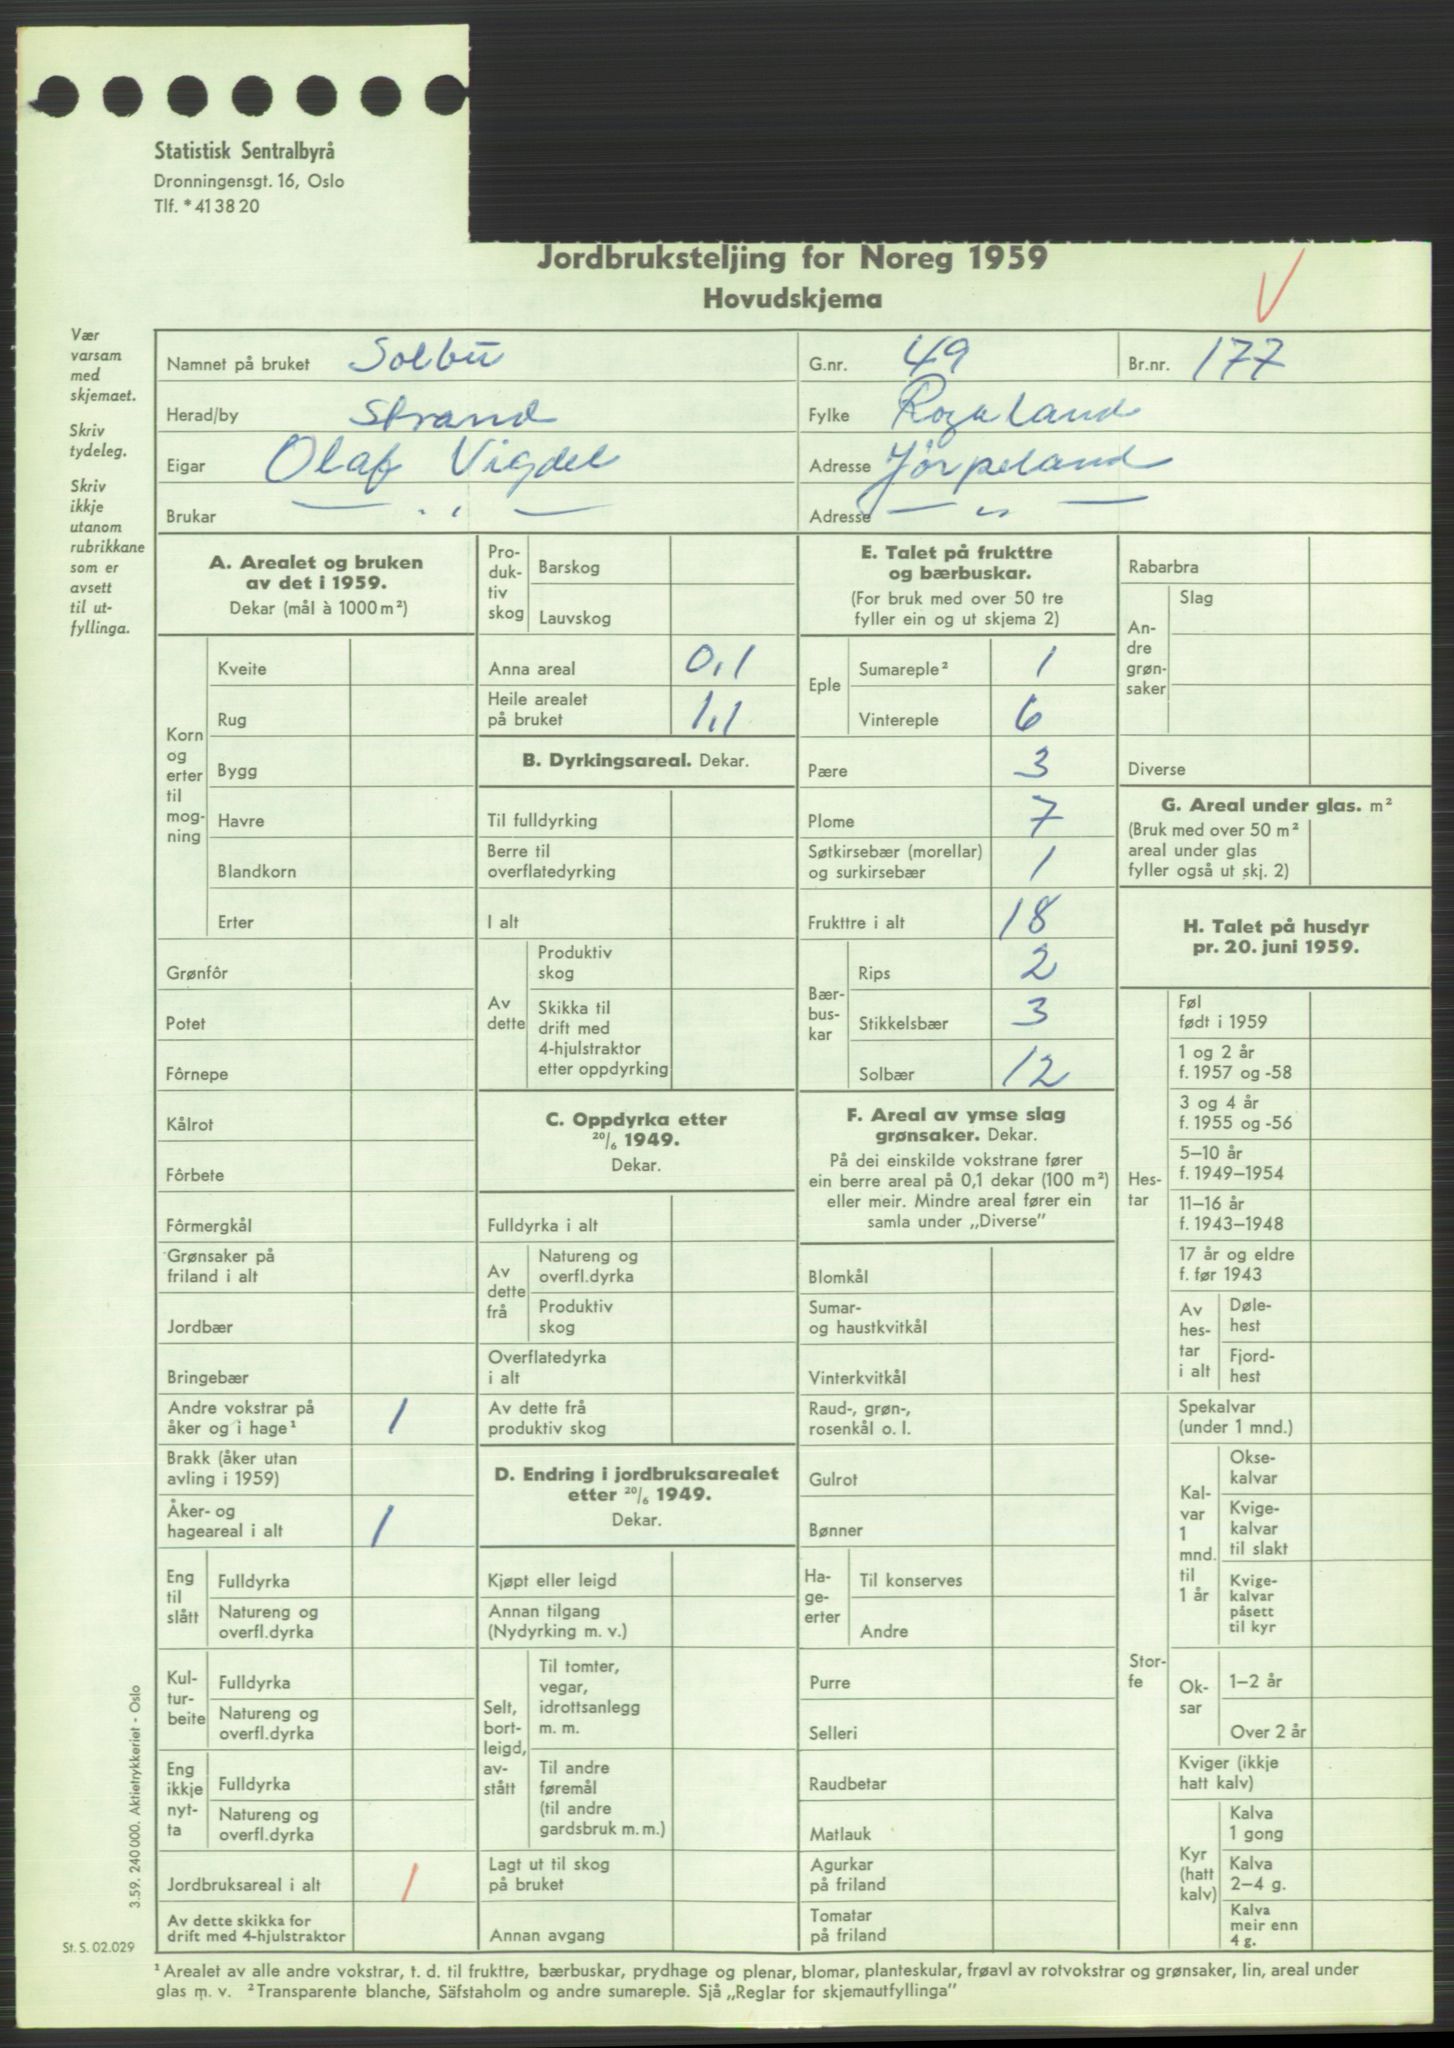 Statistisk Sentralbyrå
Dronningensgt. 16, Oslo
Tlf. * 41 38 20
Jordbruksteljing for Noreg 1959
Hovudskjema
Vær varsam med skjemaet.
Skriv tydeleg.
Skriv ikkje utanom rubrikkane som er avsett til ut-fyllinga.
Namnet på bruket Solbu G.nr. 49 Br.nr. 177
Herad/by Strand Fylke Rogaland
Eigar Olaf Vigdel Adresse Jørpeland
Brukar — " — Adresse — " —
A. Arealet og bruken av det i 1959.
Dekar (mål à 1000 m²)
Korn og erter til mog-ning
Kveite
Rug
Bygg
Havre
Blandkorn
Erter
Grønfôr
Potet
Fôrnepe
Kålrot
Fôrbete
Fôrmergkål
Grønsaker på friland i alt
Jordbær
Bringebær
Andre vokstrar på åker og i hage¹ 1
Brakk (åker utan avling i 1959)
Åker- og hageareal i alt 1
Eng til slått
Fulldyrka
Natureng og overfl.dyrka
Kul-tur-beite
Fulldyrka
Natureng og overfl.dyrka
Eng ikkje nyt-ta
Fulldyrka
Natureng og overfl.dyrka
Jordbruksareal i alt 1
Av dette skikka for drift med 4-hjulstraktor
Pro-duk-tiv skog
Barskog
Lauvskog
Anna areal 0,1
Heile arealet på bruket 1,1
B. Dyrkingsareal. Dekar.
Til fulldyrking
Berre til overflatedyrking
I alt
Av dette
Produktiv skog
Skikka til drift med 4-hjulstraktor etter oppdyrking
C. Oppdyrka etter 20/6 1949.
Dekar.
Fulldyrka i alt
Av dette frå
Natureng og overfl.dyrka
Produktiv skog
Overflatedyrka i alt
Av dette frå produktiv skog
D. Endring i jordbruksarealet etter 20/6 1949.
Dekar.
Kjøpt eller leigd
Annan tilgang (Nydyrking m. v.)
Selt, bort-leigd, av-stått
Til tomter, vegar, idrottsanlegg m. m.
Til andre føremål (til andre gardsbruk m. m.)
Lagt ut til skog på bruket
Annan avgang
E. Talet på frukttre og bærbuskar.
(For bruk med over 50 tre fyller ein og ut skjema 2)
Eple
Sumareple² 1
Vintereple 6
Pære 3
Plome 7
Søtkirsebær (morellar) og surkirsebær 1
Frukttre i alt 18
Bær-bus-kar
Rips 2
Stikkelsbær 3
Solbær 12
F. Areal av ymse slag grønsaker. Dekar.
På dei einskilde vokstrane fører ein berre areal på 0,1 dekar (100 m²) eller meir. Mindre areal fører ein samla under „Diverse"
Blomkål
Sumar- og haustkvitkål
Vinterkvitkål
Raud-, grøn-, rosenkål o. l.
Gulrot
Bønner
Ha-ge-erter
Til konserves
Andre
Purre
Selleri
Raudbetar
Matlauk
Agurkar på friland
Tomatar på friland
Rabarbra
An-dre grøn-saker
Slag
Diverse
G. Areal under glas. m²
(Bruk med over 50 m² areal under glas fyller også ut skj. 2)
H. Talet på husdyr pr. 20. juni 1959.
Hes-tar
Føl født i 1959
1 og 2 år f. 1957 og -58
3 og 4 år f. 1955 og -56
5–10 år f. 1949–1954
11–16 år f. 1943–1948
17 år og eldre f. før 1943
Av hes-tar i alt
Døle-hest
Fjord-hest
Stor-fe
Spekalvar (under 1 mnd.)
Kal-var 1 mnd. til 1 år
Okse-kalvar
Kvige-kalvar til slakt
Kvige-kalvar påsett til kyr
Ok-sar
1–2 år
Over 2 år
Kviger (ikkje hatt kalv)
Kyr (hatt kalv)
Kalva 1 gong
Kalva 2–4 g.
Kalva meir enn 4 g.
3.59. 240 000. Aktietrykkeriet - Oslo
St. S. 02.029
¹ Arealet av alle andre vokstrar, t. d. til frukttre, bærbuskar, prydhage og plenar, blomar, planteskular, frøavl av rotvokstrar og grønsaker, lin, areal under
glas m. v. ² Transparente blanche, Säfstaholm og andre sumareple. Sjå „Reglar for skjemautfyllinga"